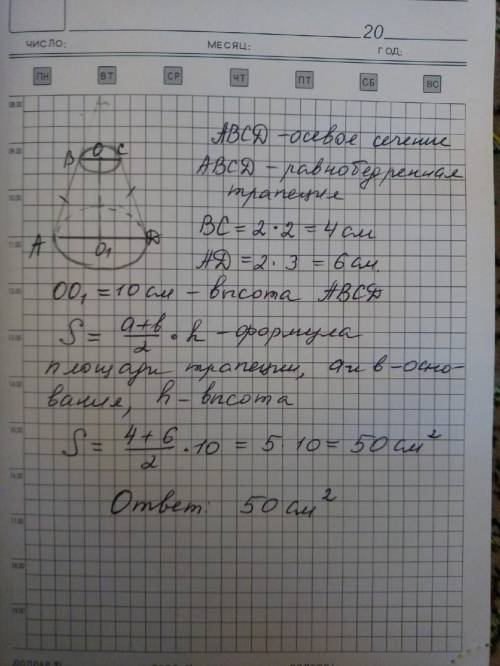 20
ЧИСЛО: МЕСЯЦ: ГОД:
ПН ВТ СР ЧТ ПТ СБ ВС
08.00
09.00
10.00
11.00
12.00
13.00
14.00
15.00
16.00
17.00
18.00
19.00
B O C
A O₁ D
ABCD - осевое сечение
ABCD - равнобедренная
трапеция
BC = 2 · 2 = 4 см
AD = 2 · 3 = 6 см.
OO₁ = 10 см - высота ABCD
S = (a+b)/2 · h - формула
площади трапеции, a и b - осно-
вания, h - высота
S = (4+6)/2 · 10 = 5 · 10 = 50 см²
Ответ: 50 см²